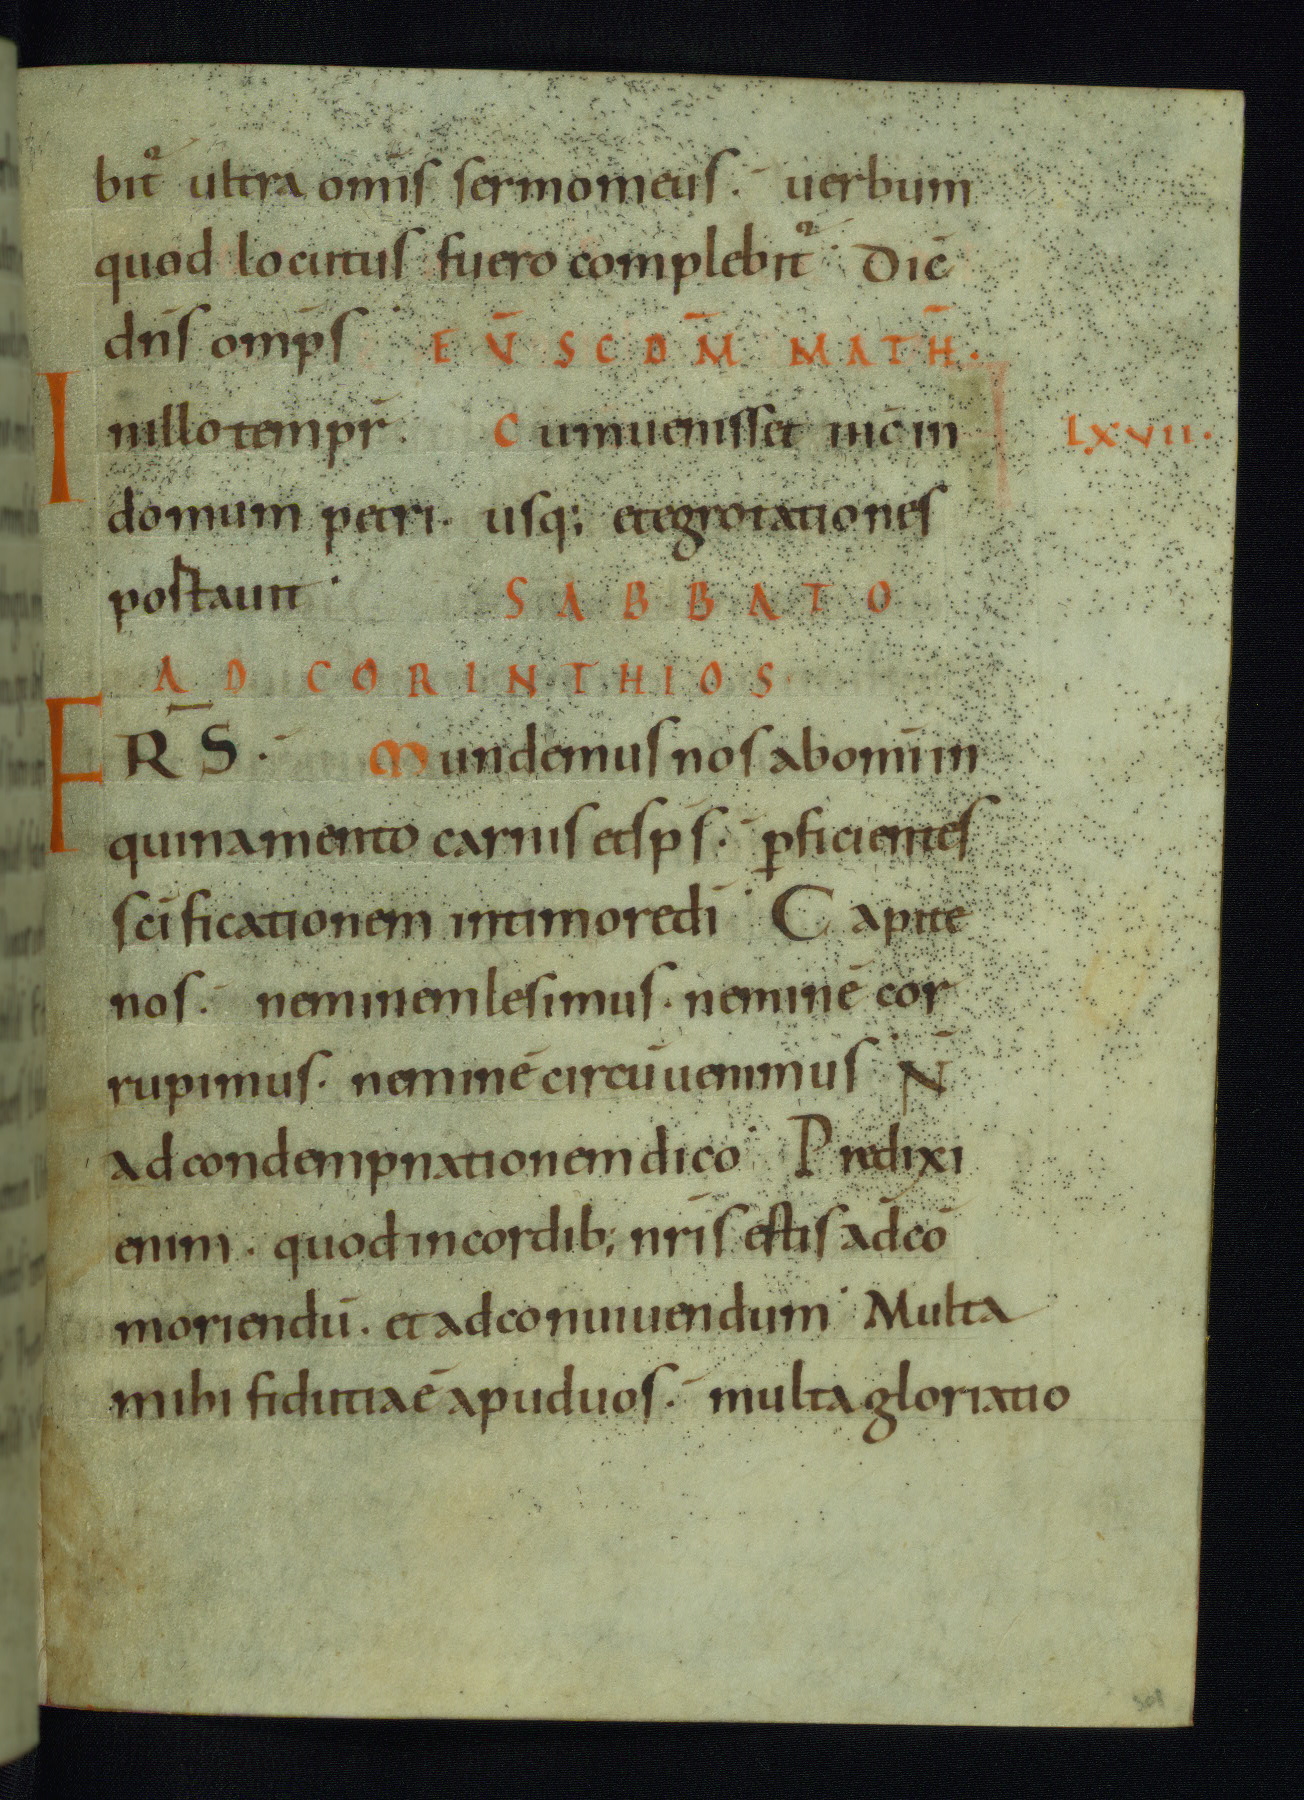 bit᷑ ultra om̄is sermo meus. uerbum
quod locutus fuero complebit᷑. Dic̄
dn̄s omp̄s EV̄ SCDM̄ MATH̄.
In illo tempr̄. Cum uenisset ih̄c in LXVII.
domum petri. usq; et egrotationes
portauit. SABBATO
AD CORINTHIOS
FR̄S. Mundemus nos ab om̄i in
quinamento carnis et sp̄s. ꝑficientes
sc̄ificationem in timore dī. Capite
nos. neminem lesimus. neminē cor
rupimus. neminē circūuenimus. N̄
ad condempnationem dico. Predixi
enim. quod in cordib; nr̄is estis ad cō
moriendū. et ad conuiuendum. Multa
mihi fidutia ē apud uos. multa gloriatio